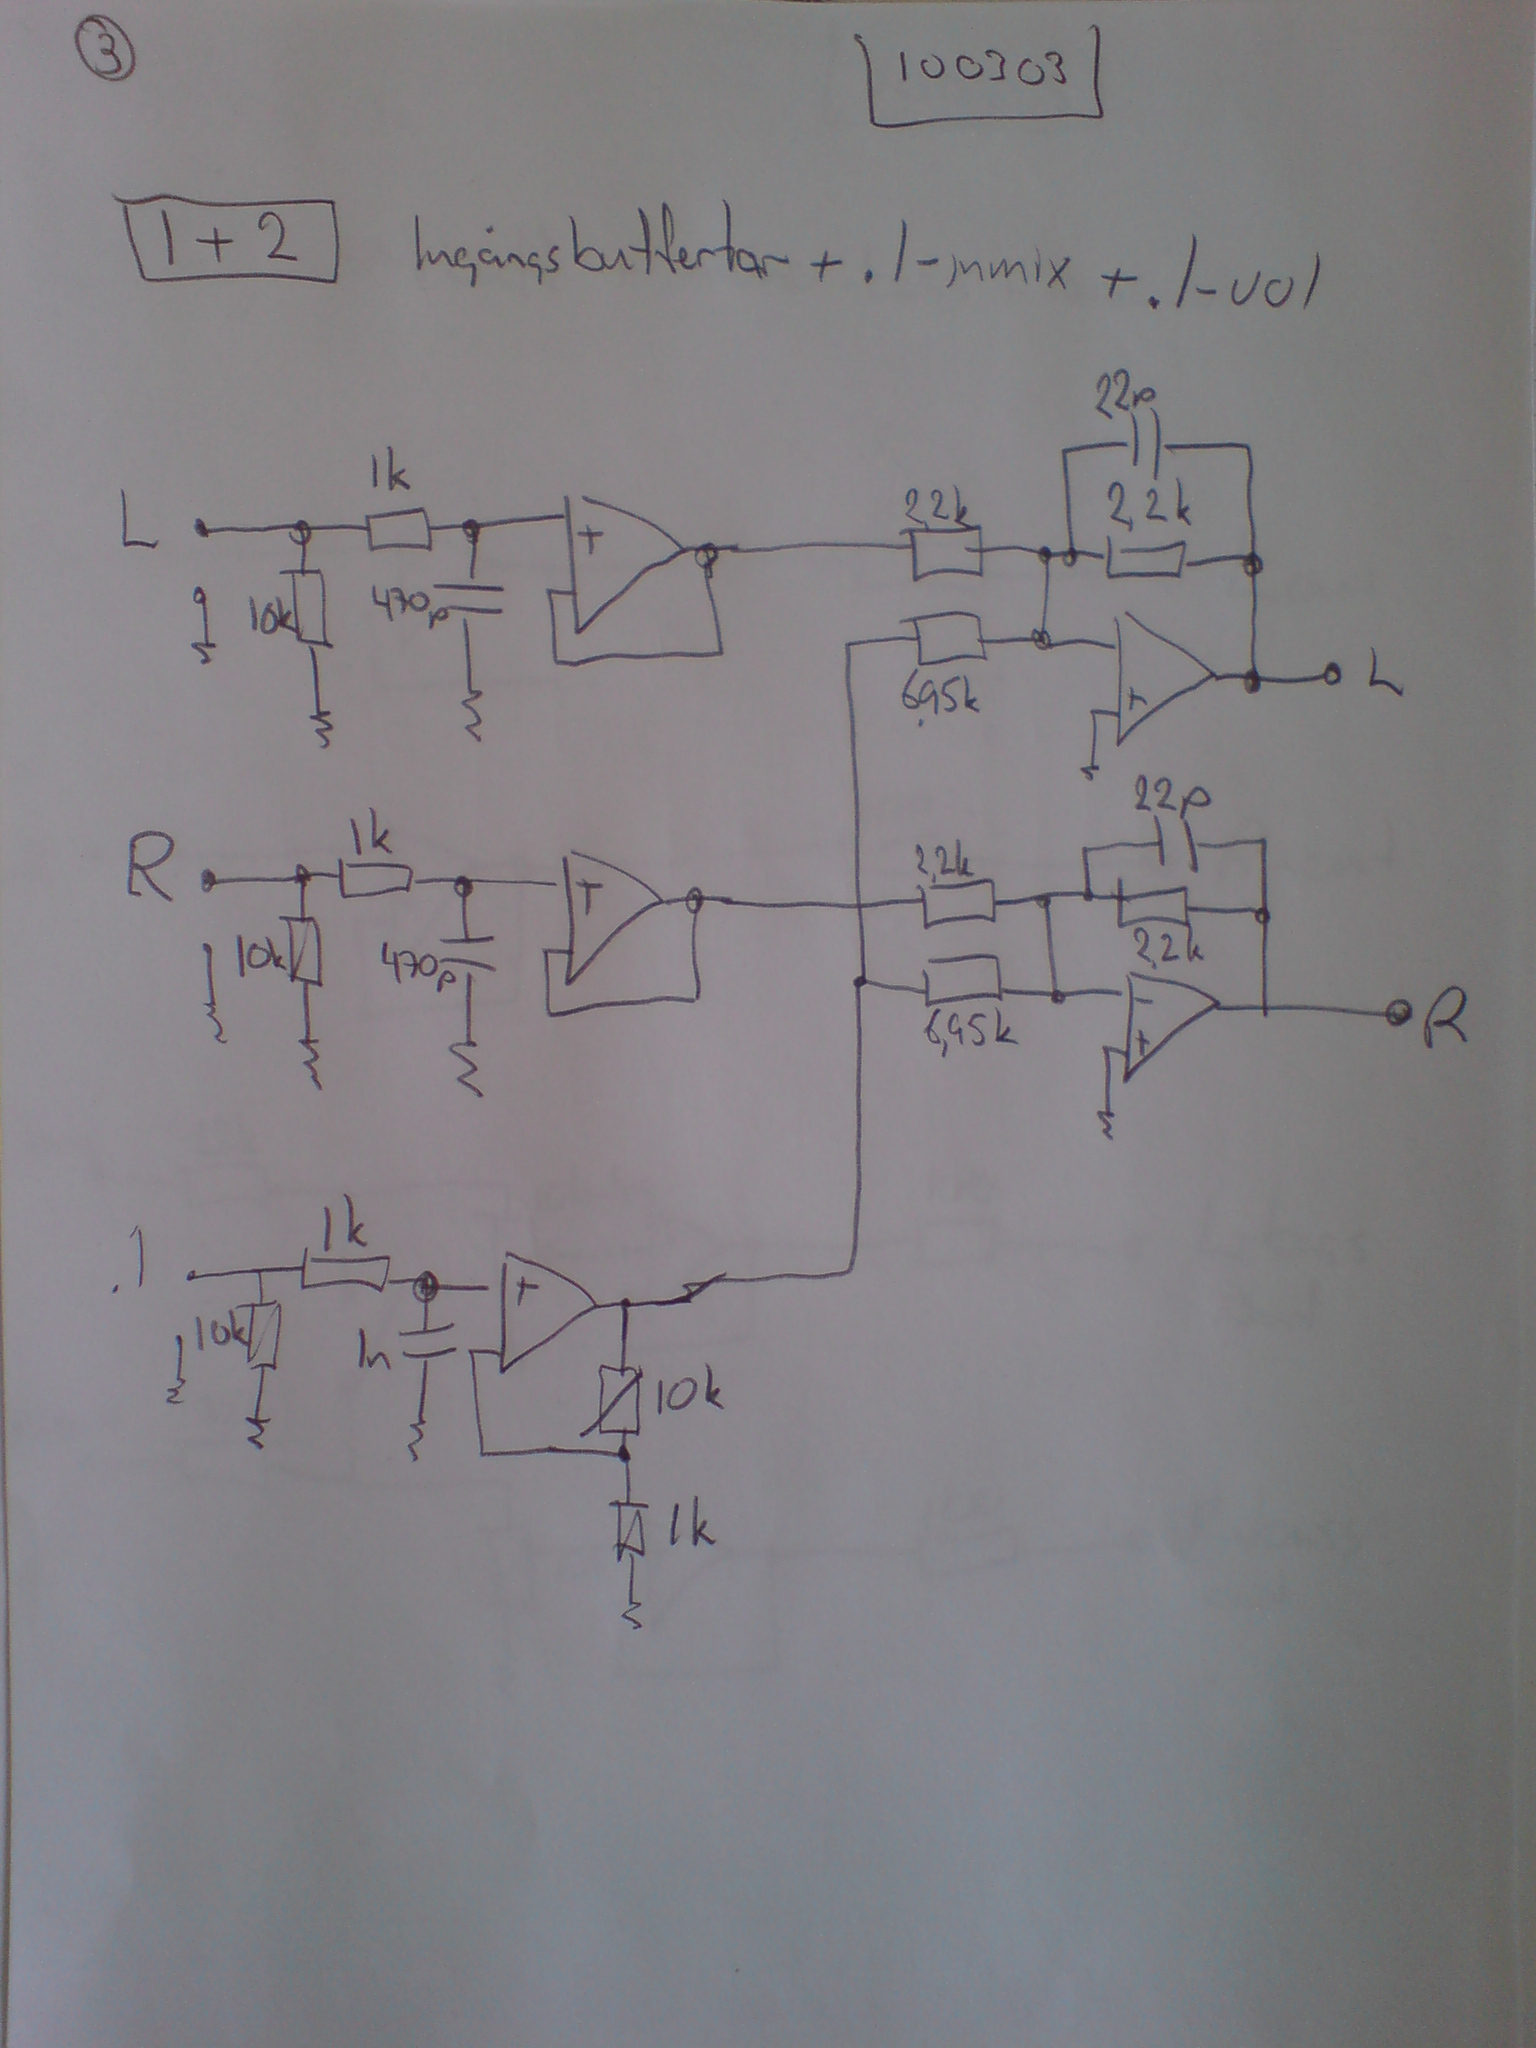 3
100303
1+2 Ingångsbuffertar + .1-inmix + .1-vol
22p
1k 2,2k 2,2k
L + L
10k 470p 6,95k +
22p
1k 2,2k
R + 2,2k
10k 470p 6,95k - + R
1k
.1 +
10k 1n 10k
1k